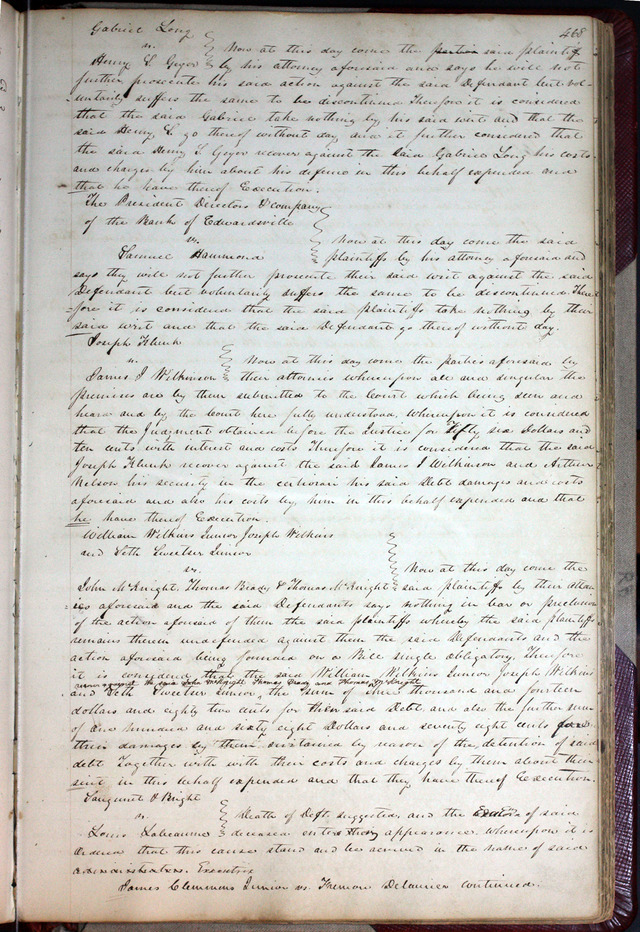 468
Gabriel Long
vs. Now at this day come the parties said plaintiff
Henry S. Geyer by his attorney aforesaid and says he will not
further prosecute his said action against the said Defendant but vol-
-untarily suffers the same to be discontinued Therefore it is considered
that the said Gabriel take nothing by his said writ and that the
said Henry S. go thereof without day and it further considered that
the said Henry S. Geyer recover against the said Gabriel Long his costs
and charges by him about his defence in this behalf expended and
that he have thereof Execution.
The President Directors & Company
of the Bank of Edwardsville
vs. Now at this day come the said
Samuel Hammond plaintiffs by his attorney aforesaid and
says they will not further prosecute their said writ against the said
Defendant but voluntarily suffers the same to be discontinued. There
-fore it is considered that the said plaintiffs take nothing by their
said writ and that the said Defendant go thereof without day.
Joseph Klunk
vs. Now at this day come the parties aforesaid by
James J Wilkinson their attornies whereupon all and singular the
premises are by them submitted to the Court which being seen and
heard and by the Court here fully understood, Whereupon it is considered
that the Judgment obtained before the Justice for Fifty six Dollars and
ten cents with interest and costs Therefore it is considered that the said
Joseph Klunk recover against the said James J Wilkinson and Arthur
Nelson his security in the certiorari his said Debt damages and costs
aforesaid and also his costs by him in this behalf expended and that
he have thereof Execution.
William Wilkins Junior Joseph Wilkins
and Seth Sweetser Junior
vs. Now at this day come the
John McKnight, Thomas Brady & Thomas McKnight said plaintiffs by their attor-
-nies aforesaid and the said Defendants says nothing in bar or preclusion
of the action aforesaid of them the said plaintiffs whereby the said plaintiffs
remains therein undefended against them the said Defendants and the
action aforesaid being founded on a Bill single obligatory, Therefore
it is considered that the said William Wilkins Junior Joseph Wilkins
against the said John McKnight Thomas Brady and Thomas McKnight
and Seth Sweetser Junior, the sum of Three thousand and fourteen
dollars and eighty two cents for their said Debt and also the further sum
of One hundred and sixty eight Dollars and seventy eight cents for
their damages by them sustained by reason of the detention of said
debt Together with with their costs and charges by them about their
suit in this behalf expended and that they have thereof Execution.
Sargeant & Bright
vs. Death of Deft. suggested, and the of said
Louis Labeaume deceased enters their appearance. Whereupon it is
Ordered that this cause stand and be revived in the name of said
administrators. Executrix
James Clemmons Junior vs. Delaurier Continued.